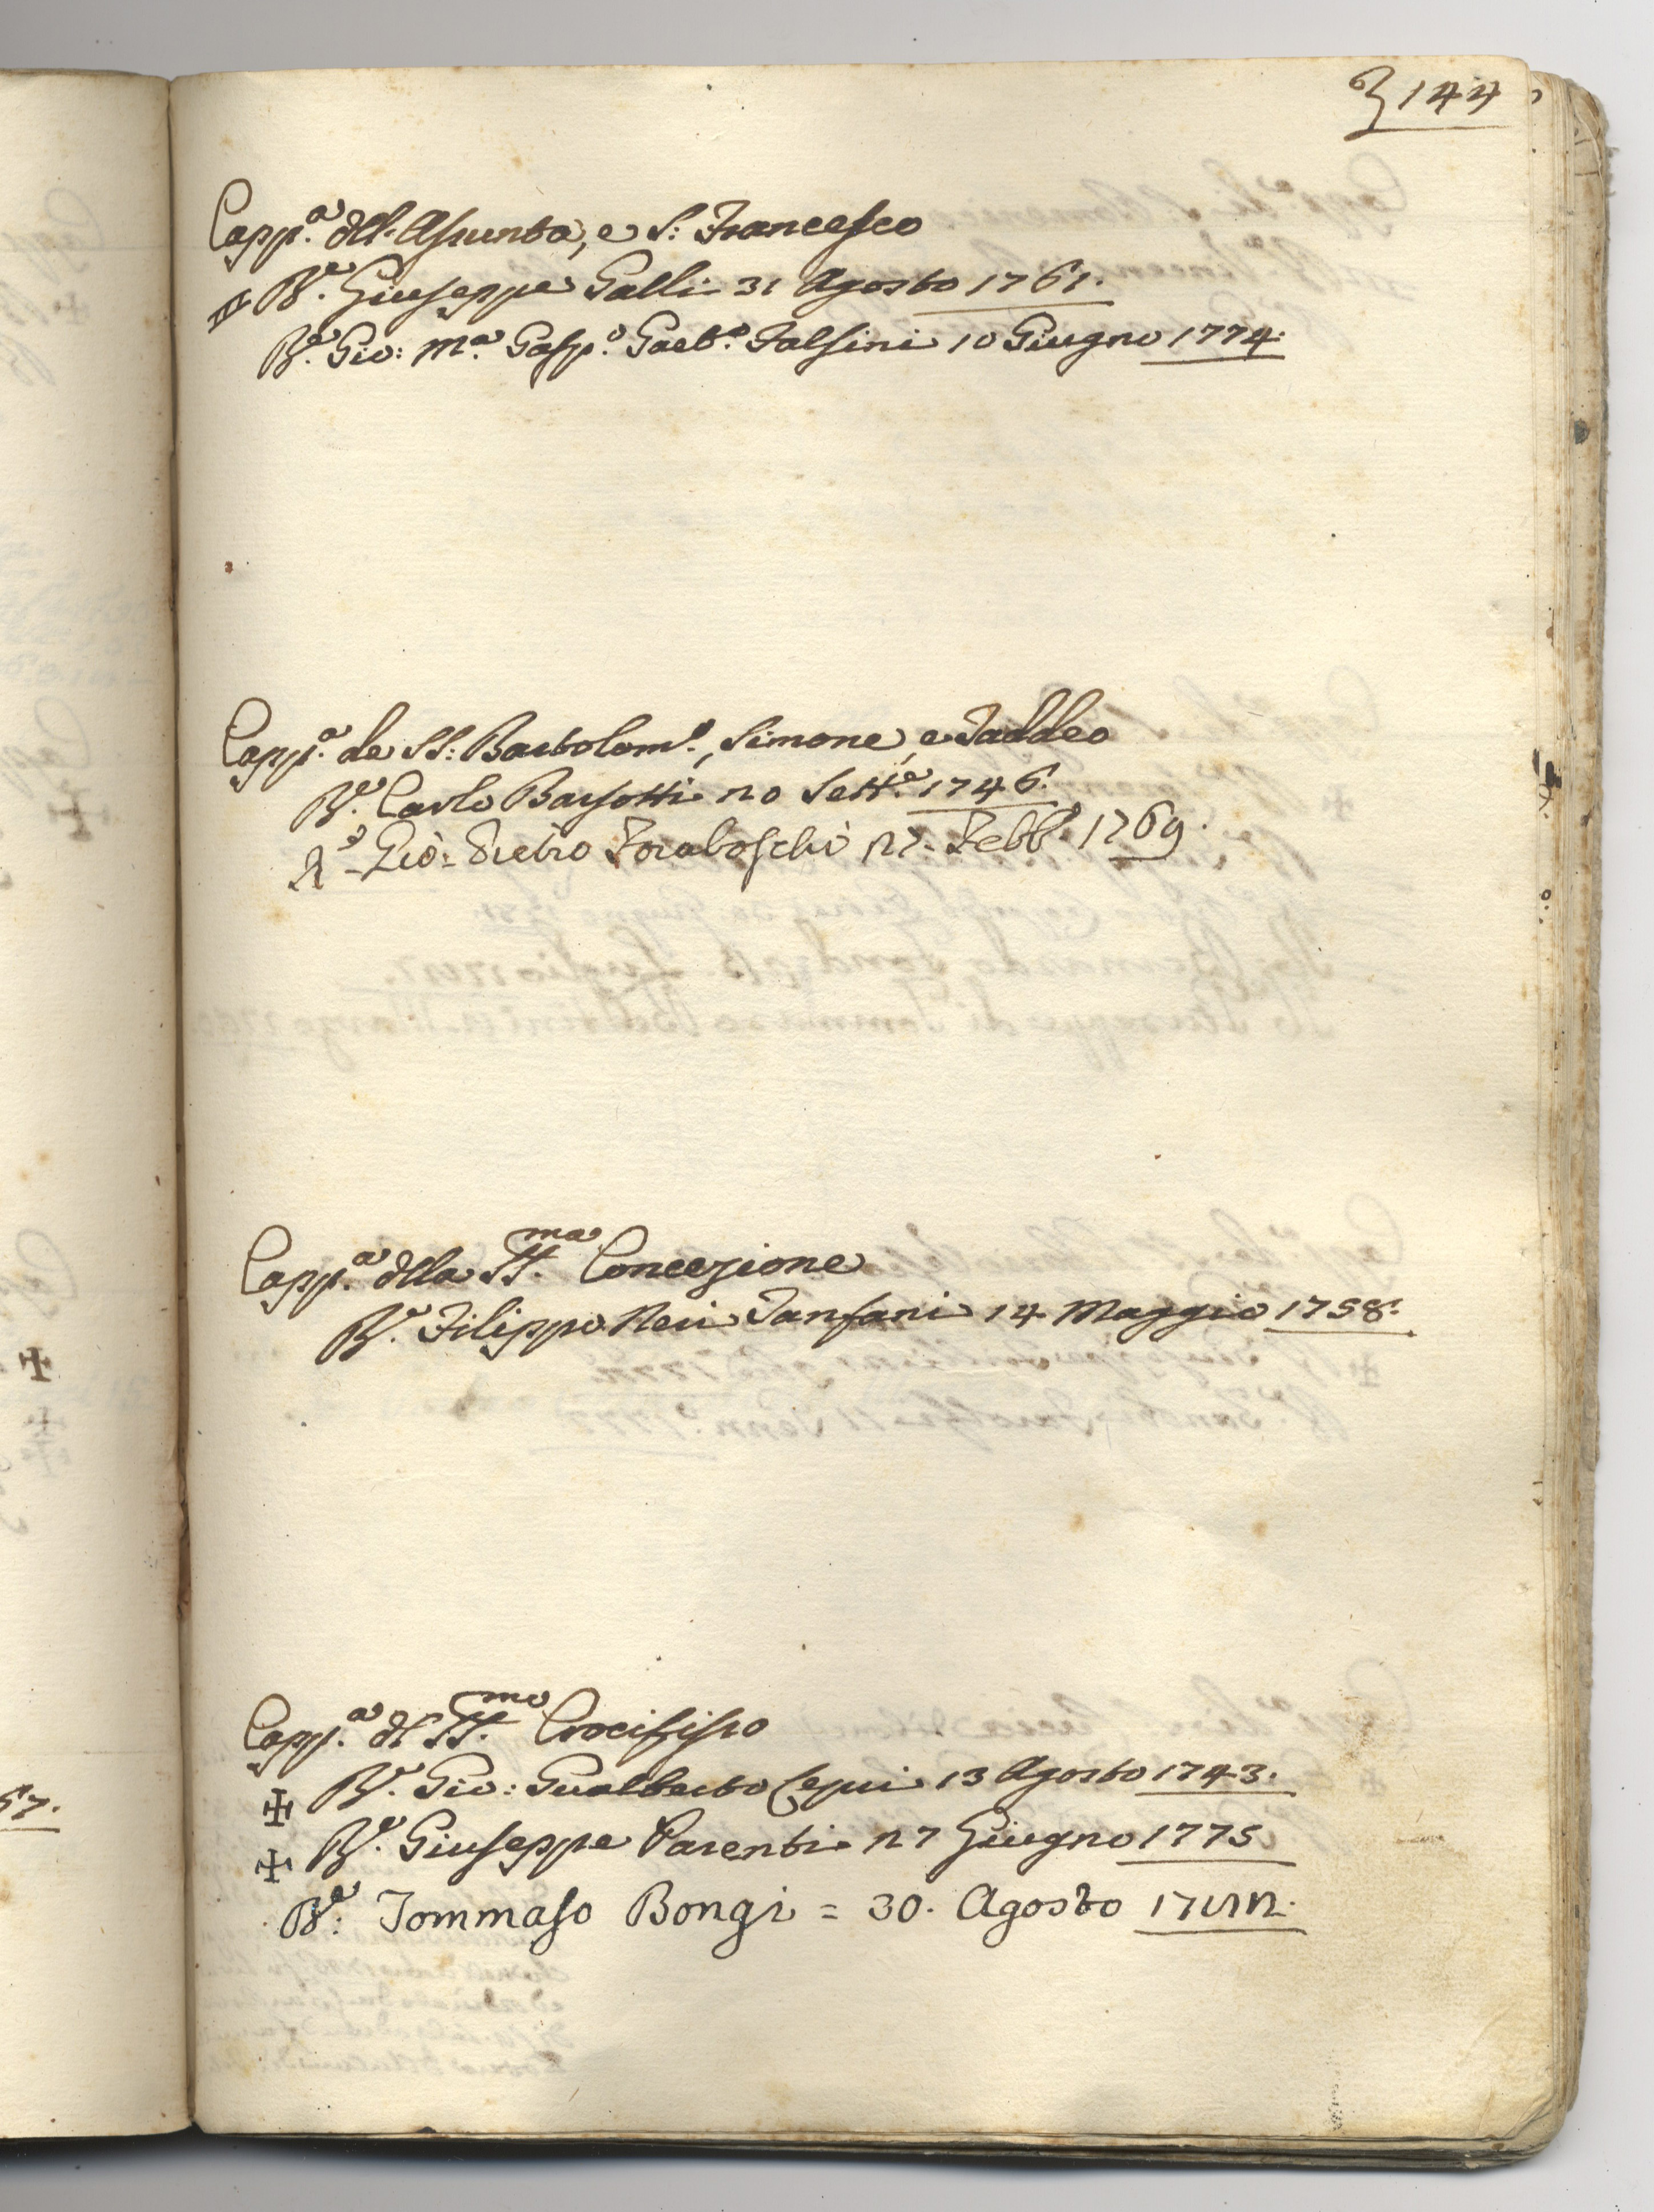 144
Capp.a dell'Assunta, e S: Francesco
R.e Giuseppe Galli 31 Agosto 1761.
R.e Gio: M.a Gasp.o Gaet.o Falsini 10 Giugno 1774.
Capp.a de SS: Bartolom.o, Simone, e Taddeo
R.e Carlo Barsotti 20 Sett.e 1746.
R.e Gio: Pietro Foraboschi 27. Febb.o 1769.
Capp.a della SS.ma Concezione
R.e Filippo Neri Tanfani 14 Maggio 1758.
Capp.a del SS.mo Crocifisso
R.e Gio: Gualberto Cepui 13 Agosto 1743.
R.e Giuseppe Parenti 27 Giugno 1775
R.e Tommaso Bongi = 30. Agosto
57.